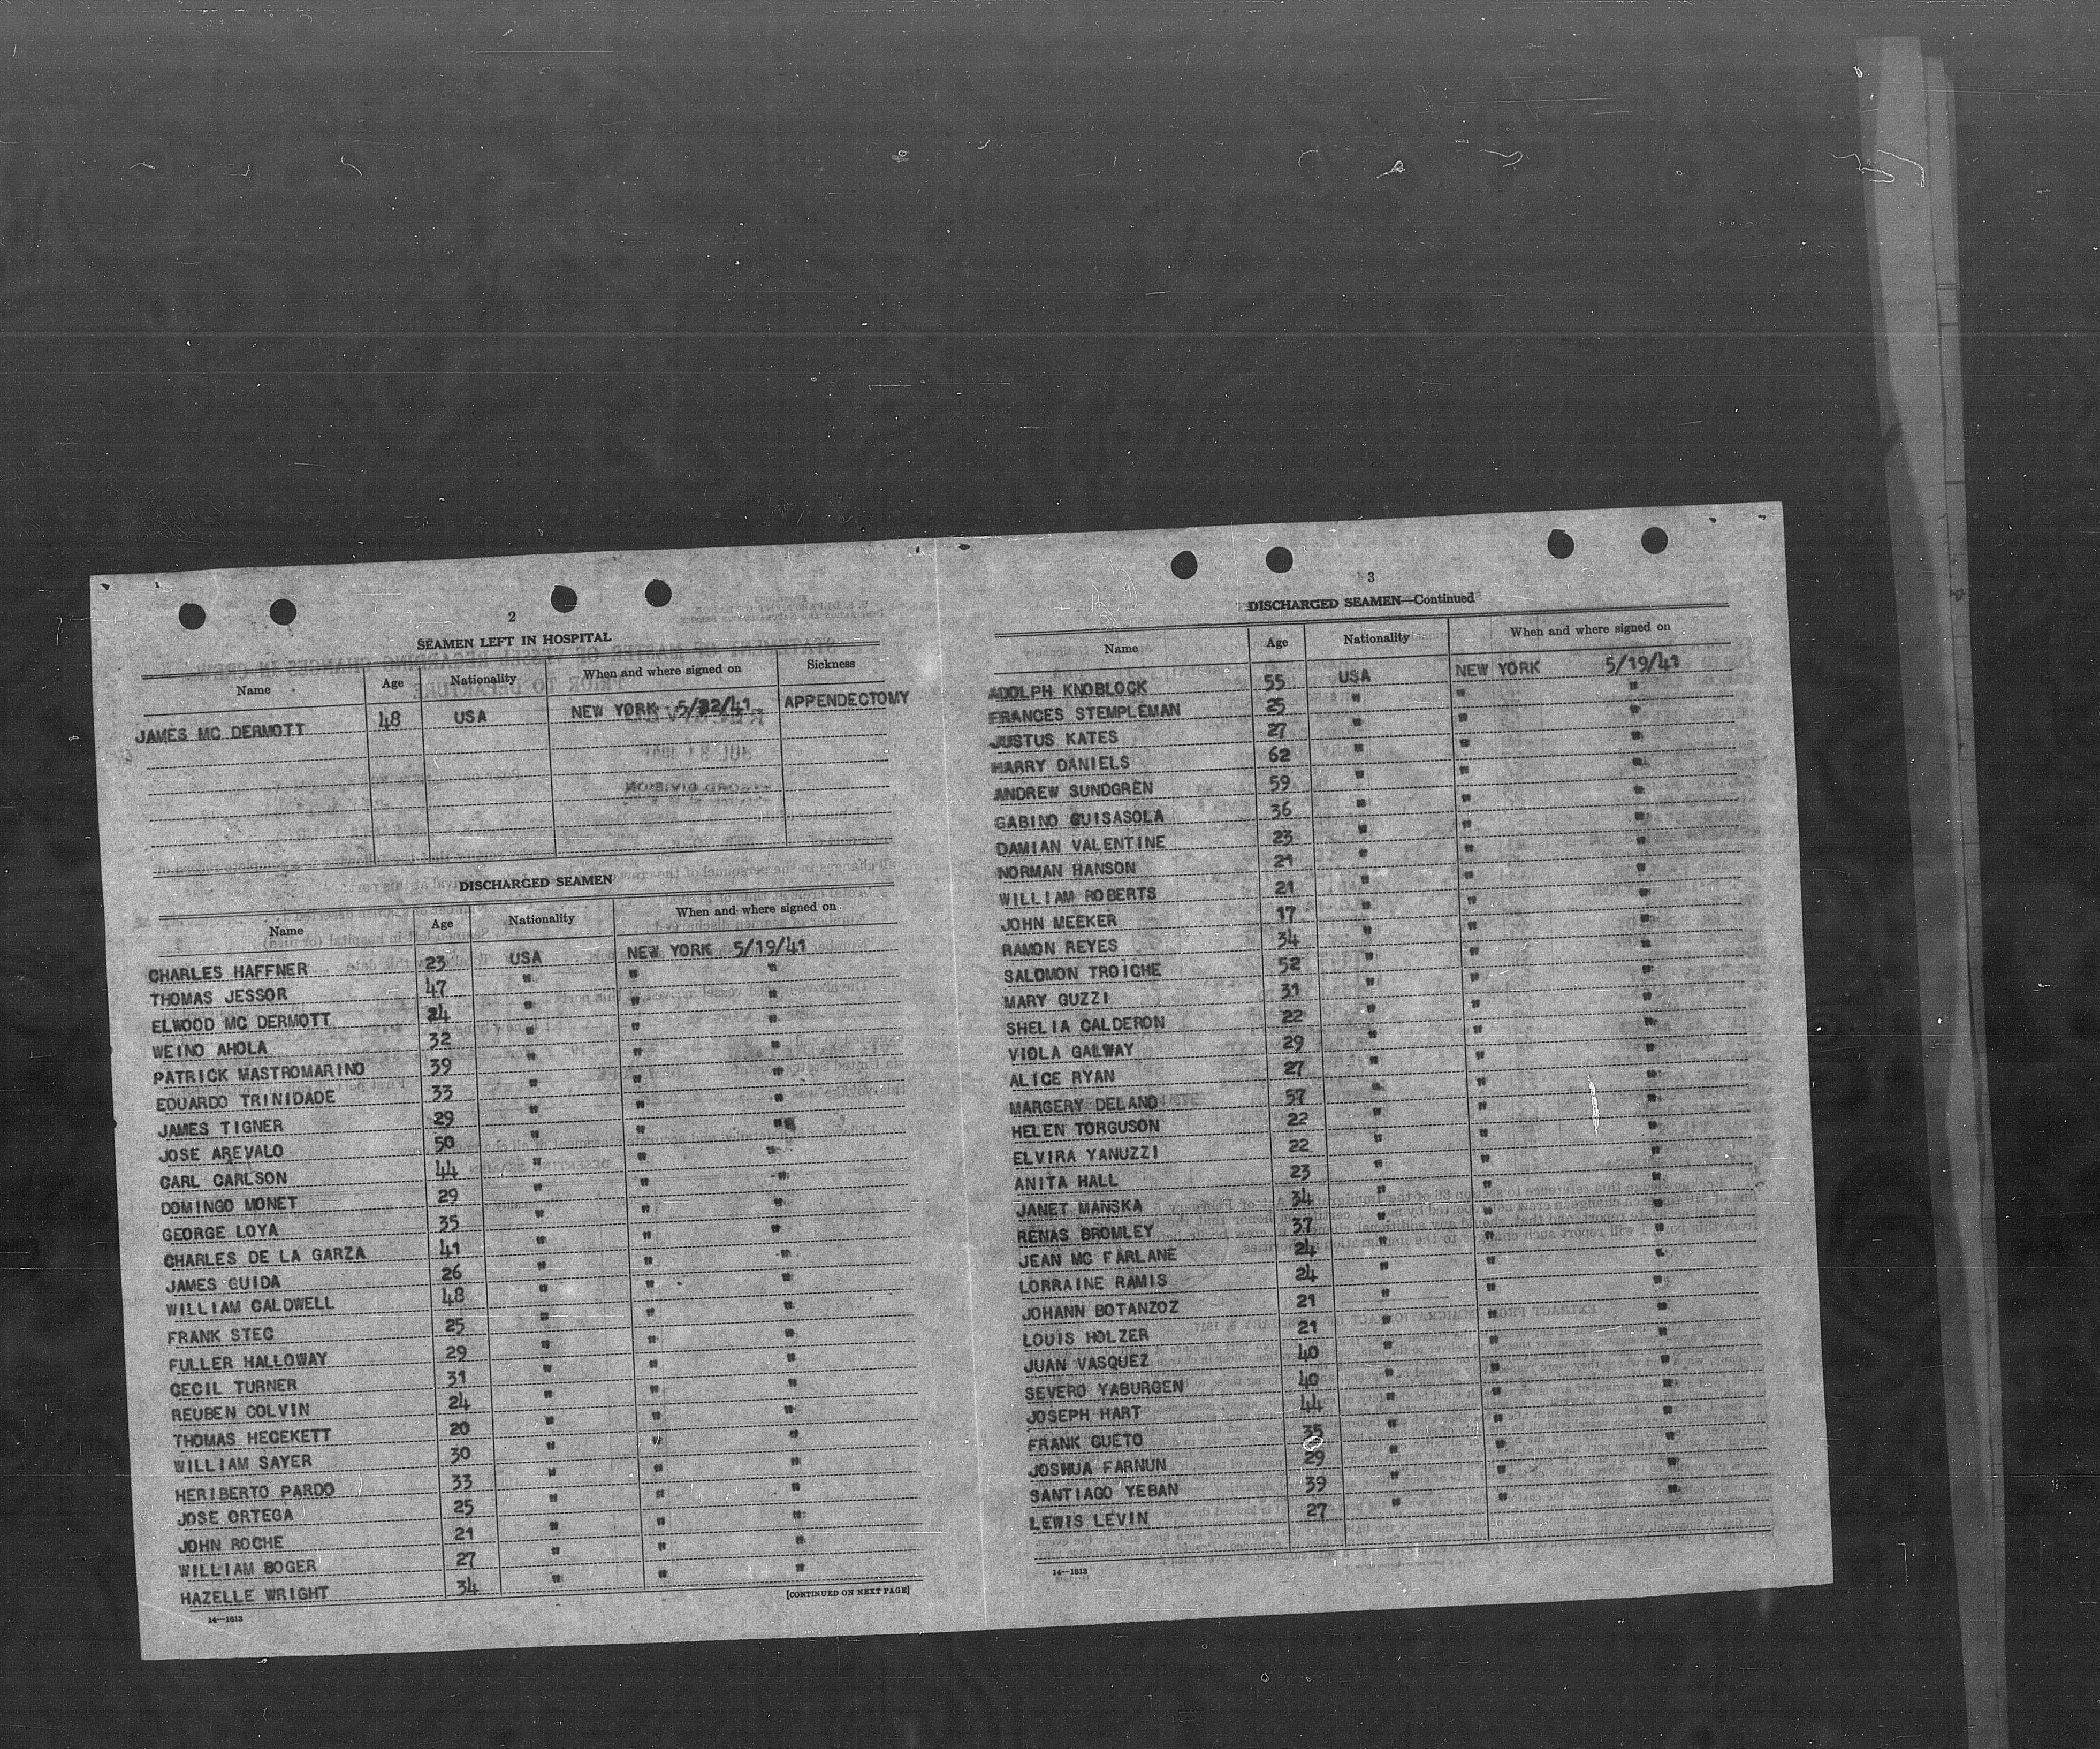 2
SEAMEN LEFT IN HOSPITAL
Name Age Nationality When and where signed on Sickness
JAMES MC DERMOTT 48 USA NEW YORK 5/22/41 APPENDECTOMY
DISCHARGED SEAMEN
Name Age Nationality When and where signed on
CHARLES HAFFNER 23 USA NEW YORK 5/19/41
THOMAS JESSOR 47 " " "
ELWOOD MC DERMOTT 24 " " "
WEINO AHOLA 32 " " "
PATRICK MASTROMARINO 39 " " "
EDUARDO TRINIDADE 33 " " "
JAMES TIGNER 29 " " "
JOSE AREVALO 50 " " "
CARL CARLSON 44 " " "
DOMINGO MONET 29 " " "
GEORGE LOYA 35 " " "
CHARLES DE LA GARZA 41 " " "
JAMES GUIDA 26 " " "
WILLIAM CALDWELL 48 " " "
FRANK STEC 25 " " "
FULLER HALLOWAY 29 " " "
CECIL TURNER 31 " " "
REUBEN COLVIN 24 " " "
THOMAS HECEKETT 20 " " "
WILLIAM SAYER 30 " " "
HERIBERTO PARDO 33 " " "
JOSE ORTEGA 25 " " "
JOHN ROCHE 21 " " "
WILLIAM BOGER 27 " " "
HAZELLE WRIGHT 34 " " "
14—1613
[CONTINUED ON NEXT PAGE]
3
DISCHARGED SEAMEN—Continued
Name Age Nationality When and where signed on
ADOLPH KNOBLOCK 55 USA NEW YORK 5/19/41
FRANCES STEMPLEMAN 25 " " "
JUSTUS KATES 27 " " "
HARRY DANIELS 62 " " "
ANDREW SUNDGREN 59 " " "
GABINO GUISASOLA 36 " " "
DAMIAN VALENTINE 23 " " "
NORMAN HANSON 21 " " "
WILLIAM ROBERTS 21 " " "
JOHN MEEKER 17 " " "
RAMON REYES 34 " " "
SALOMON TROICHE 52 " " "
MARY GUZZI 31 " " "
SHELIA CALDERON 22 " " "
VIOLA GALWAY 29 " " "
ALICE RYAN 27 " " "
MARGERY DELANO 57 " " "
HELEN TORGUSON 22 " " "
ELVIRA YANUZZI 22 " " "
ANITA HALL 23 " " "
JANET MANSKA 34 " " "
RENAS BROMLEY 37 " " "
JEAN MC FARLANE 24 " " "
LORRAINE RAMIS 24 " " "
JOHANN BOTANZOZ 21 " " "
LOUIS HOLZER 21 " " "
JUAN VASQUEZ 40 " " "
SEVERO YABURGEN 40 " " "
JOSEPH HART 44 " " "
FRANK CUETO 35 " " "
JOSHUA FARNUN 29 " " "
SANTIAGO YEBAN 39 " " "
LEWIS LEVIN 27 " " "
14—1613